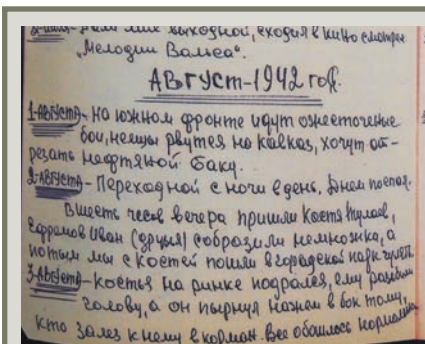 выходной, сходил в кино смотрел
„Мелодии Вальса“.
АВГУСТ-1942 год.
1-АВГУСТА- на южном фронте идут ожесточеные
бои, немцы рвутся на Кавказ, хотят от-
резать нефтяной Баку.
2-АВГУСТА- Переходной с ночи в день. Днем поспал.
Вшесть часов вечера пришли Костя
Ефрамов Иван (друзья) собразили немножка, а
потым мы с Костей пошли в городской парк гулять
3-АВГУСТА- Костья на рынке подрался, ему разбили
голову, а он пырнул ножам в бок тому,
кто залез к нему в корман. Все обошлось нормально